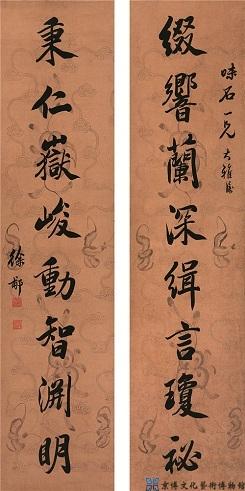 味石一兄大雅属
缀響蘭深缉言瓊祕
秉仁嶽峻動智淵明
徐郙
京博文化藝術博物館